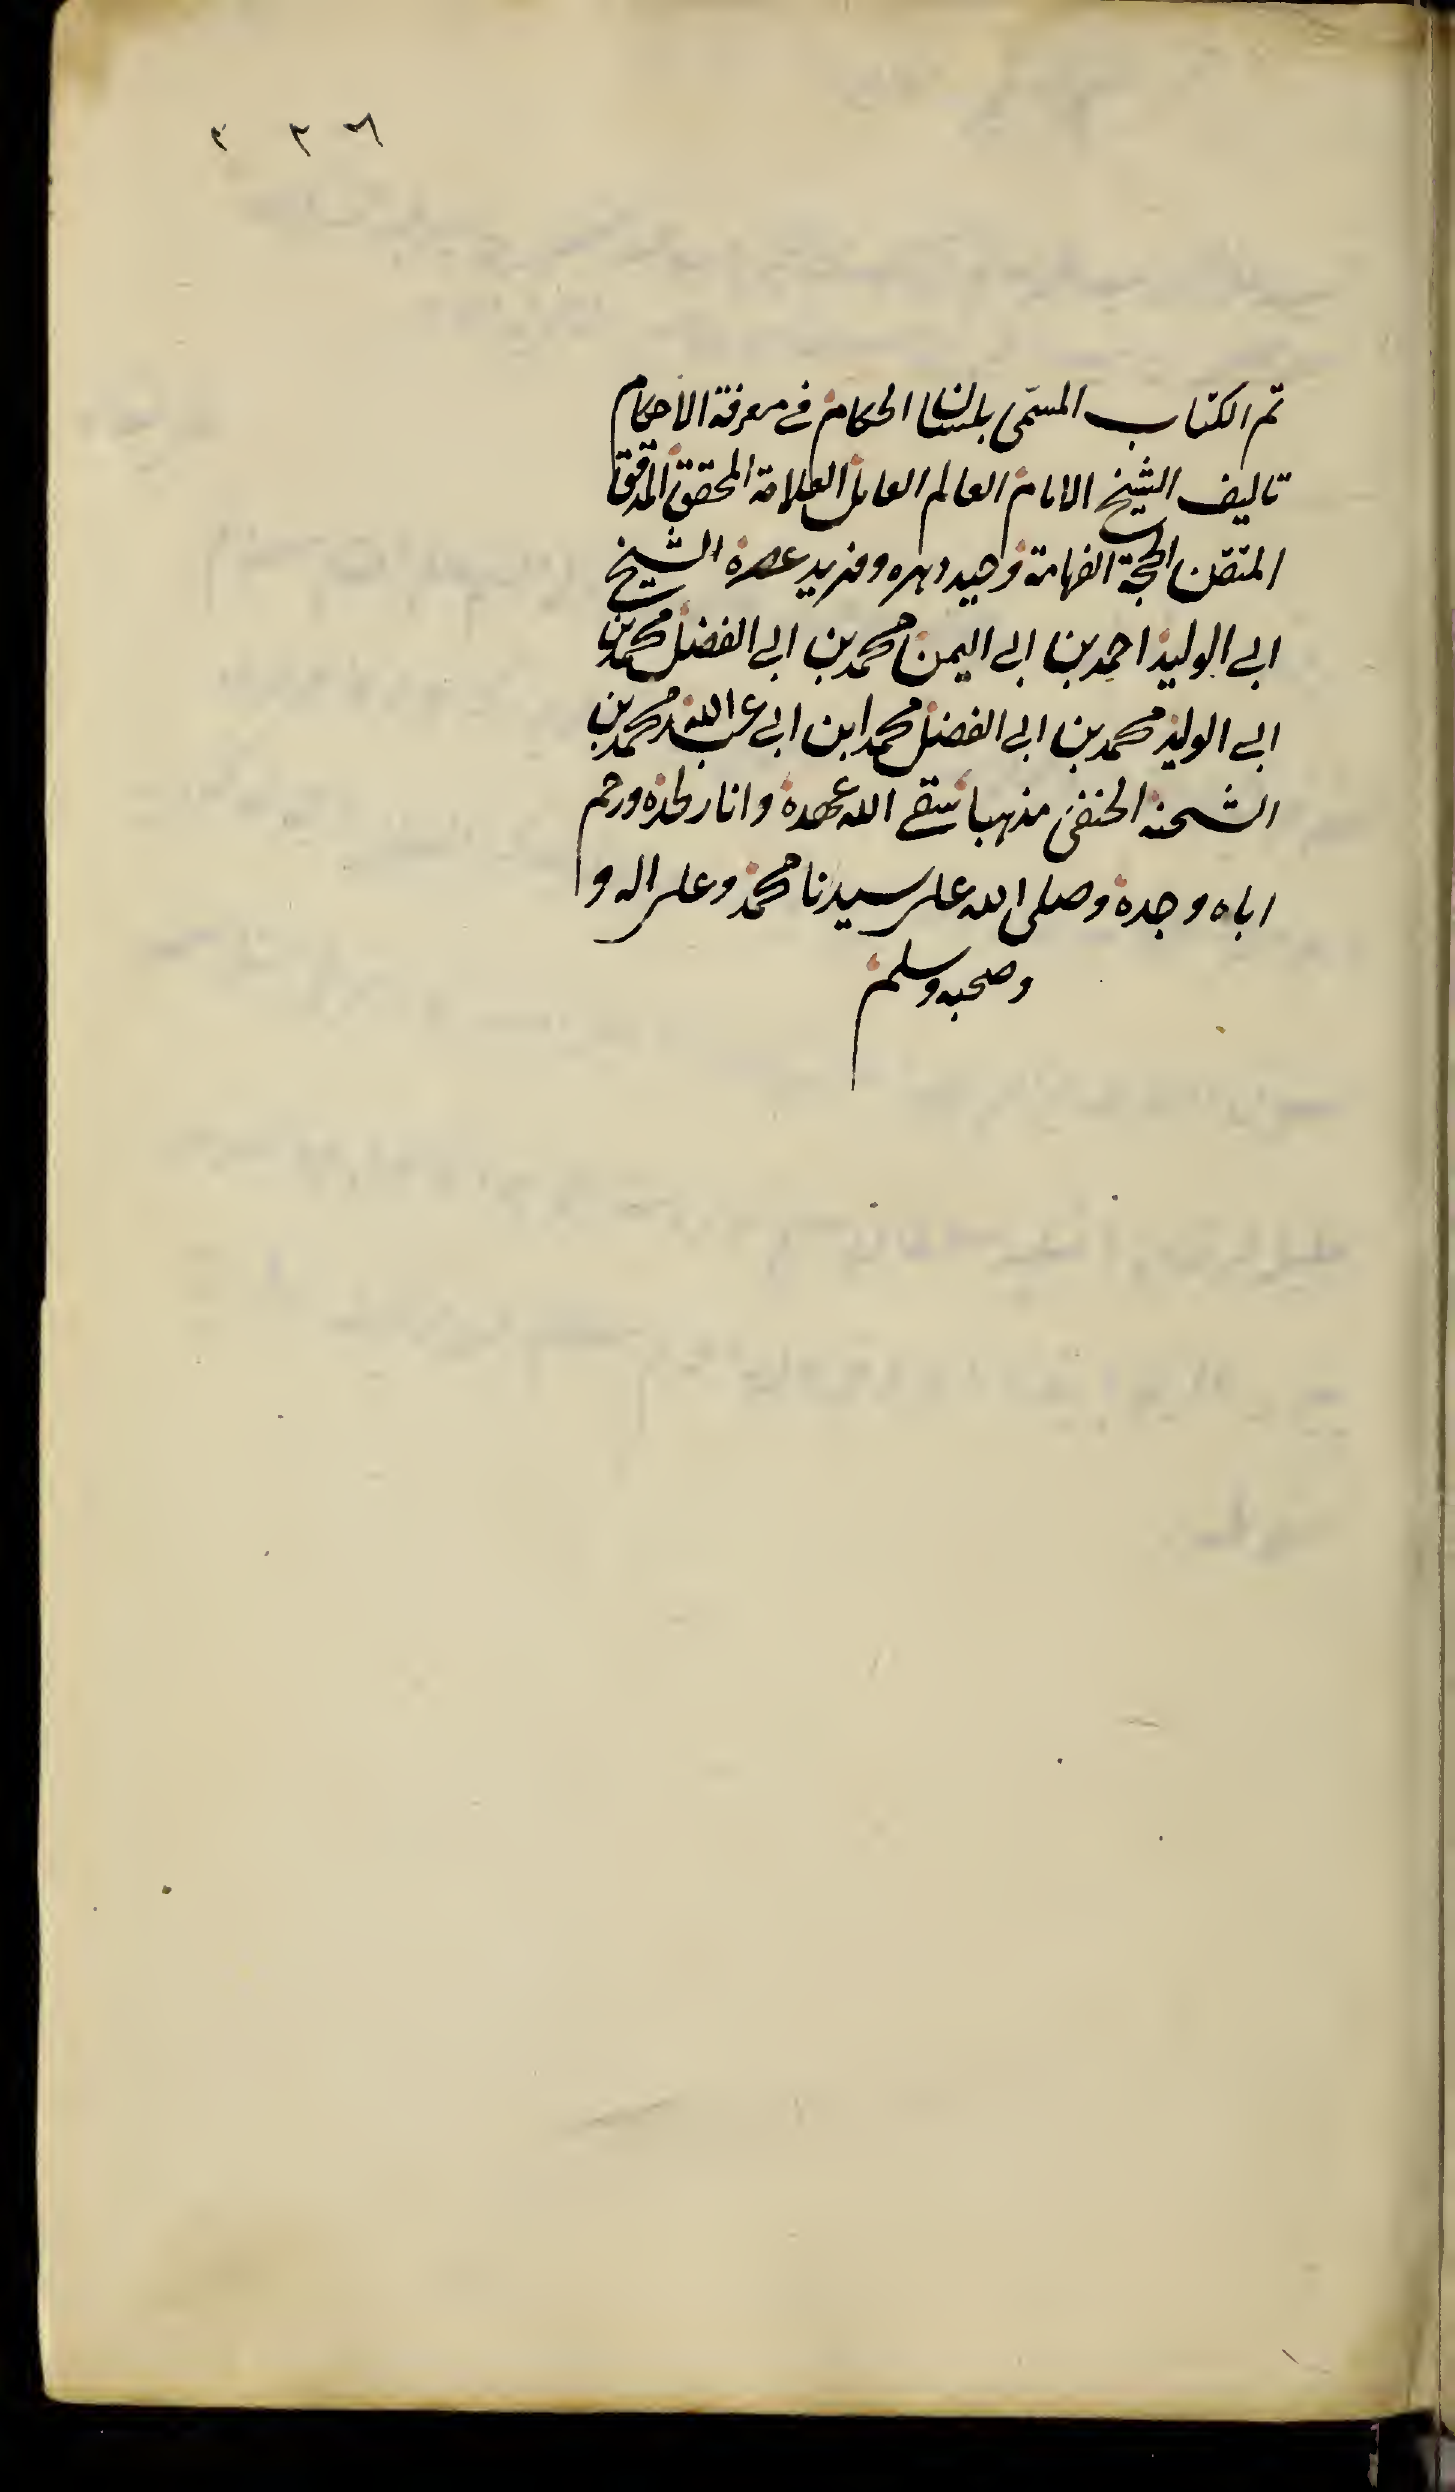 تم الكتاب المسمى بلسان الحكام في معرفة الاحكام
تاليف الشيخ الامام العالم العامل العلامة المحقق المدقق
المتقن الحجة الفهامة وحيد دهره وفريد عصره الشيخ
ابي الوليد احمد بن ابي اليمن محمد بن ابي الفضل محمد بن
ابي الوليد محمد بن ابي الفضل محمد ابن ابي عبد الله محمد بن
الشحنه الحنفي مذهبا سقى الله عهده وانار لحده ورحم
اباه وجده وصلى الله على سيدنا محمد وعلى اله و
وصحبه وسلم